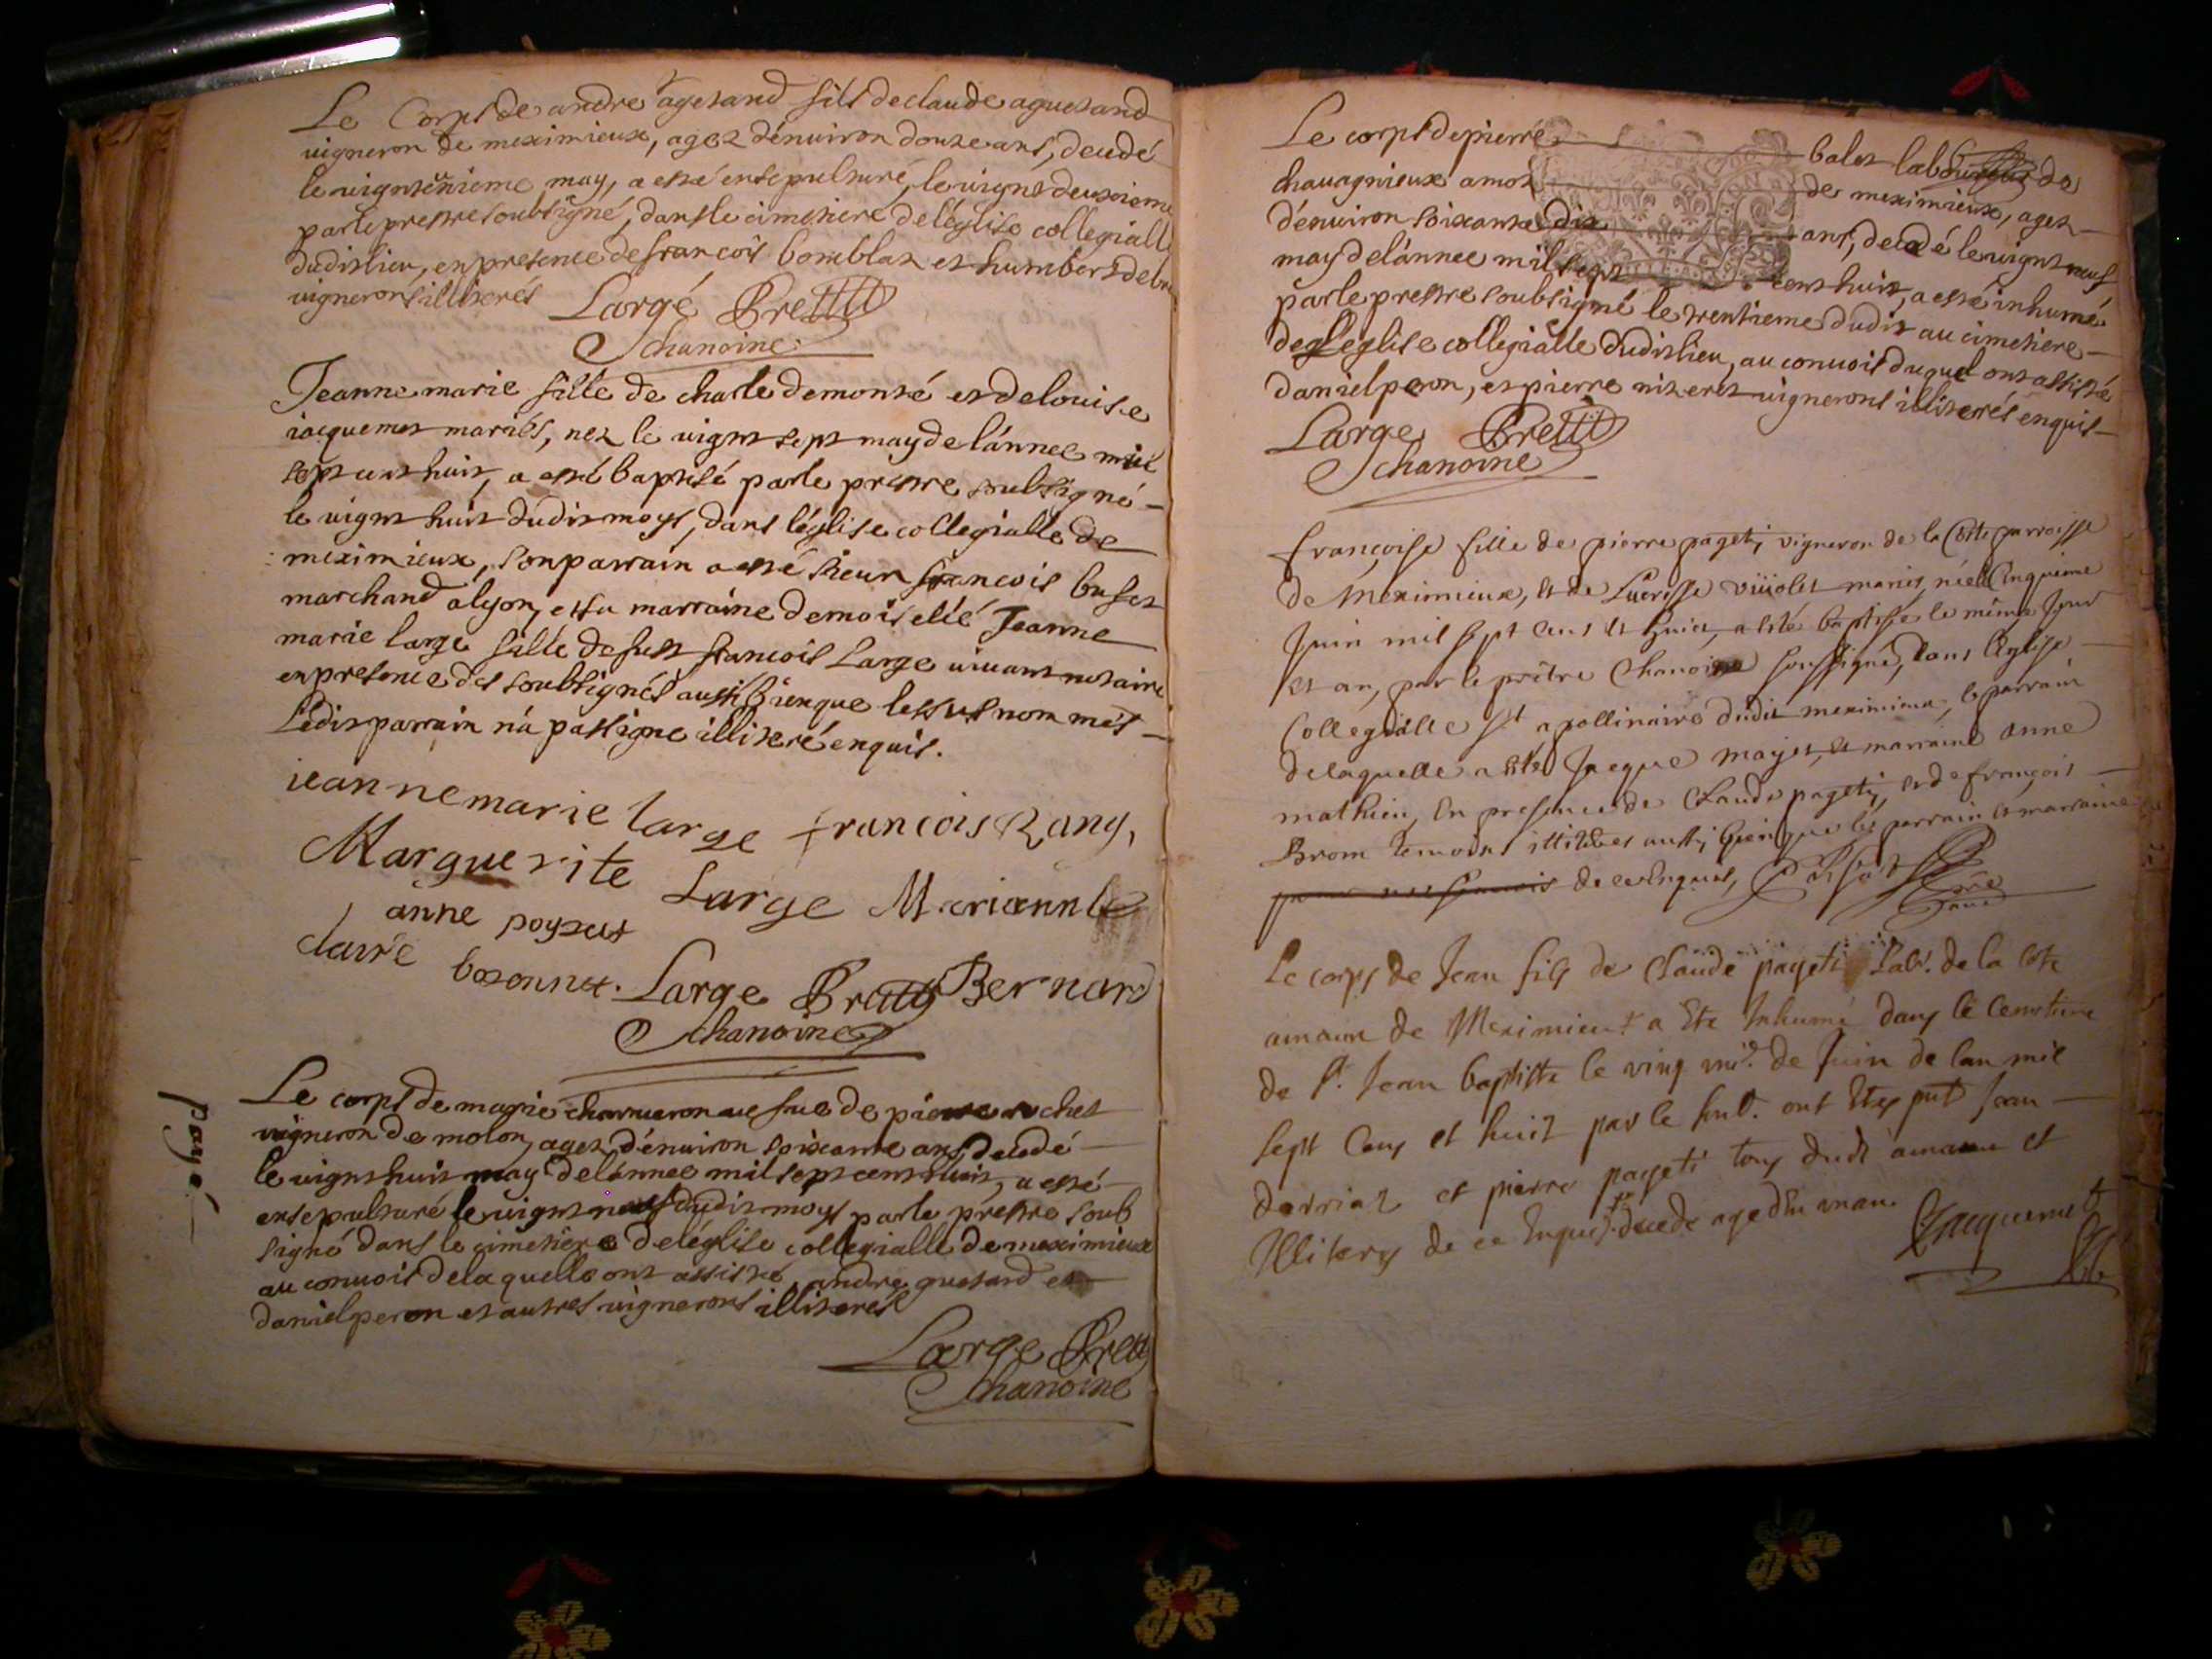 Le Corps de andre agetand fils de claude aguetand
vigneron de meximieux, agez d'enuiron douze ans, decedé
le uignt unieme may, a esté ensepulturé, le uignt deuxieme
par le prestre soubsigné, dans le cimetiere de l'église collegialle
dudit lieu, en presence de francois bomblat et humbert
uignerons illiterés Large Prette
chanoine
Jeanne marie fille de charle demonté et de louise
iaquemet mariés, nez le uignt sept may de l'annee mil
sept cent huit, a esté baptisé par le prestre soubsigné
le uignt huit dudit moys, dans l'église collegialle de
meximieux, son parrain a esté sieur francois buset
marchand a lyon, et sa marraine demoiselle Jeanne
marie large fille de fust francois Large uiuant notaire
en presence des soubsignés aussi bien que les sus nommés
Ledit parrain n'a pas signé illiteré enquis.
ieanne marie large francois Rany,
Marguerite Large Marianne
anne poyzet
claire bozonnet. Large Prette Bernard
chanoine
payé
Le corps de marie de pierre rochet
vigneron de molon, agez d'enuiron soixante ans, decedé
le uignt huit may de l'annee mil sept cent huit, a esté
ensepulturé le uignt neuf dudit moys par le prestre soub
signé dans le cimetiere de l'église collegialle de meximieux
au conuois de laquelle ont assisté andre guetand et
daniel peron et autres uignerons illiterés
Large Prette
chanoine
Le corps de pierre balet laboureur de
chauagnieux amot de meximieux, agez
d'enuiron soixante dix ans, decedé le uignt neuf
may de l'annee mil sept cent huit, a esté inhumé
par le prestre soubsigné le trentieme dudit au cimetiere
de l'eglise collegialle dudit lieu, au conuois duquel ont assisté
daniel peron, et pierre niteret uignerons illiterés enquis
Large Prette
chanoine
françoise fille de pierre pageti, vigneron de la Coste parroisse
de Meximieux, et de Lucresse viiolet mariés, née le Cinquieme
Juin mil sept cens et huict, a esté baptisée le même Jour
et an, par le prêtre Chanoine soussigné, dans l'eglise
Collegialle St apollinaire dudit meximieux, le parrain
de laquelle a esté Jacque mayet, et marraine anne
mathieu, en presence de Claude pageti, et de françois
Brom temoins illiteres aussi bien que les parrain et marraine
de ce enquis,
Curé
Le corps de Jean fils de Claude pageti Lab. de la Coste
amaux de Meximieux a Ete Inhumé dans le Cemetiere
de St. Jean baptiste le ving uni. de Juin de lan mil
sept Cens et huit par le soub. ont Eté pnt Jean
derriaz et pierre pageti tous dudt amaux et
Illiterés de ce Enquis. decede age d'un an. Jacquemet